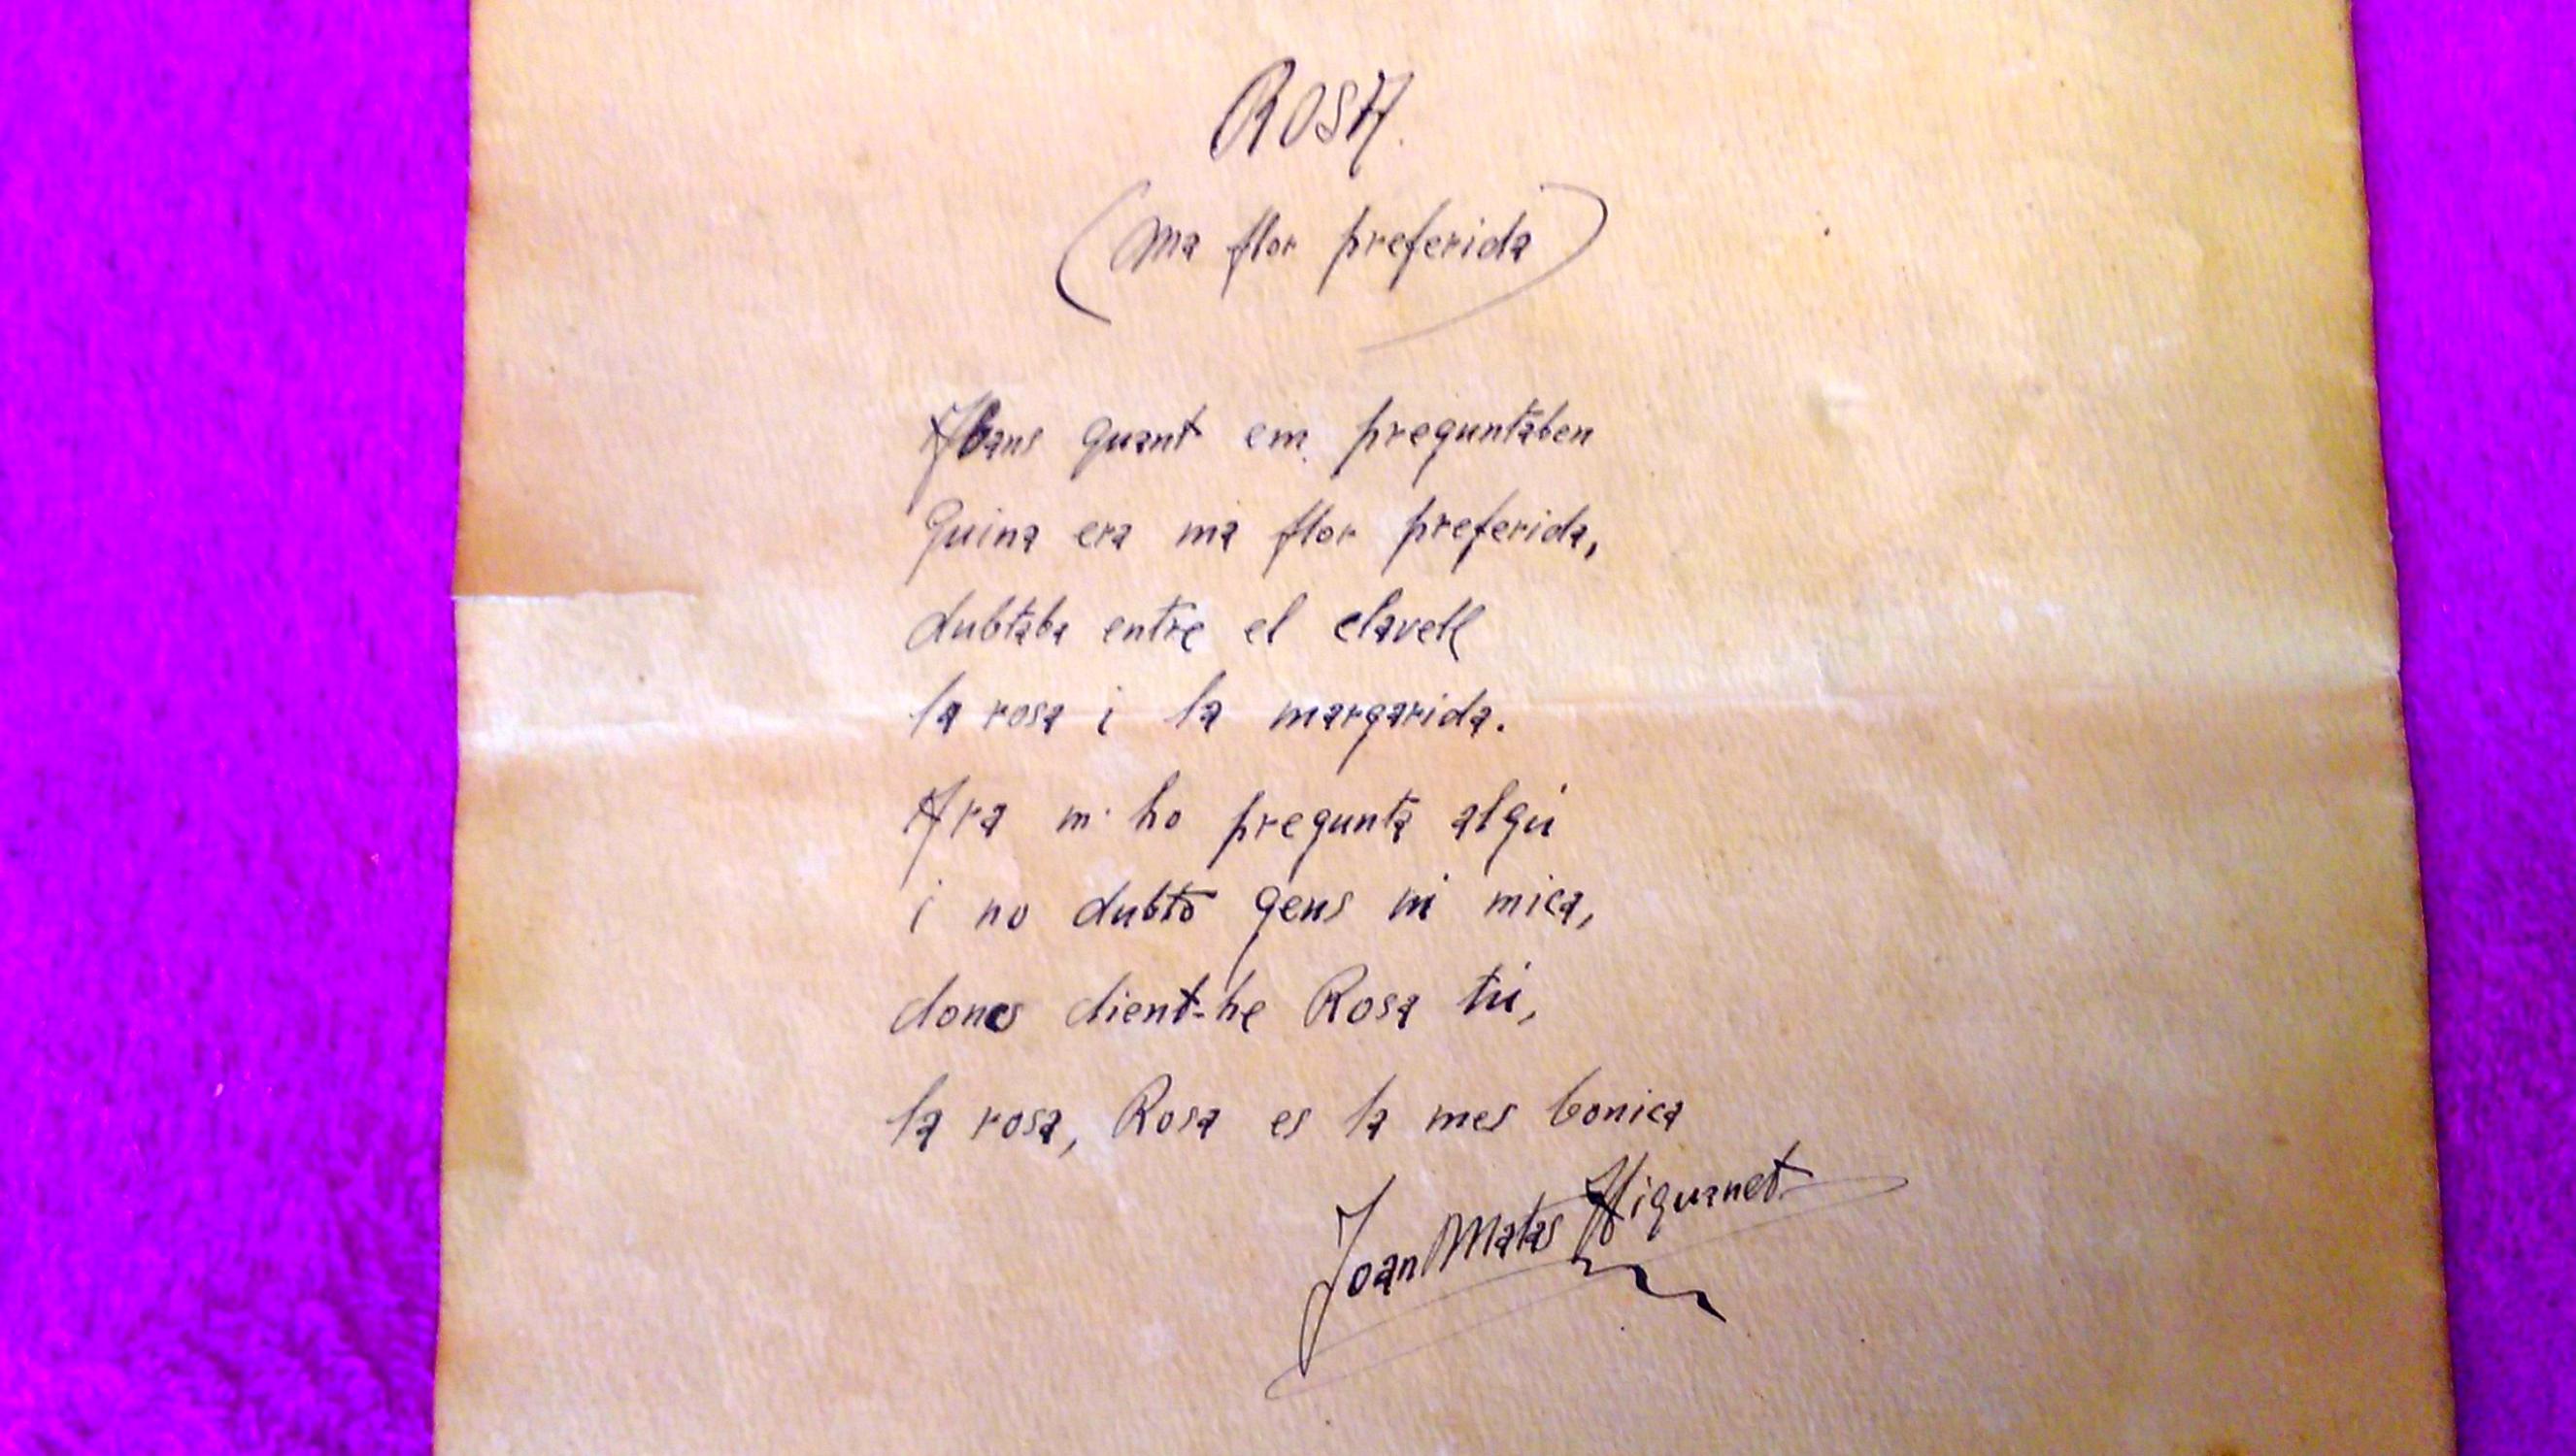 ROSA.
(Ma flor preferida)
Abans quant em preguntaben
Quina era ma flor preferida,
dubtaba entre el clavell
la rosa i la margarida.
Ara m'ho pregunta algú
i no dubto gens ni mica,
doncs dient-he Rosa tú,
la rosa, Rosa es la mes bonica
Joan Matas Aiguanet